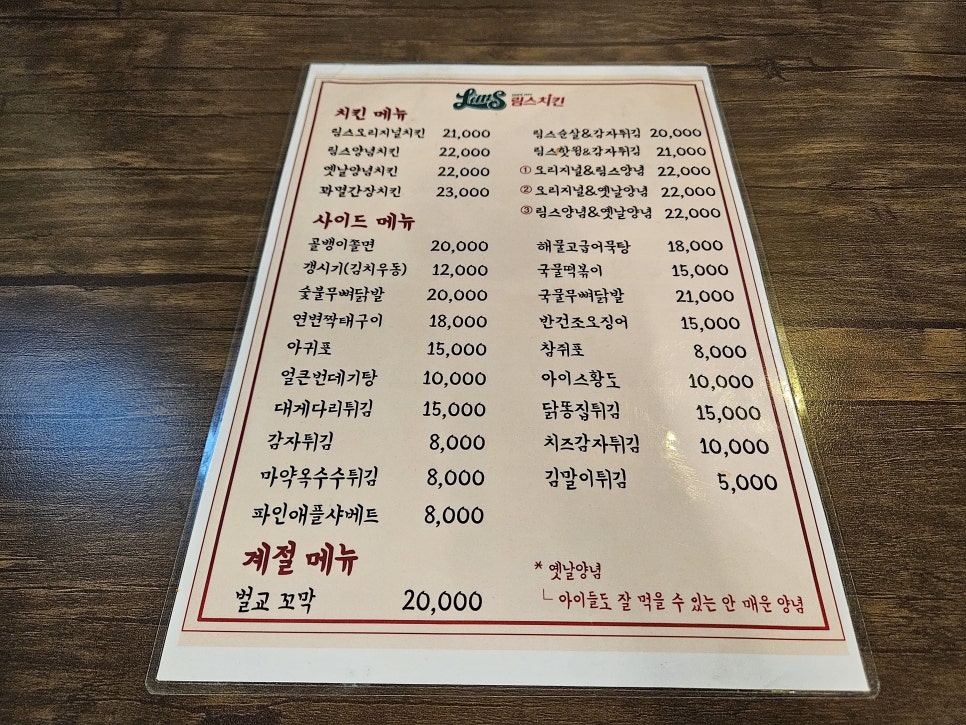 Lims 림스치킨
치킨 메뉴
림스오리지널치킨 21,000
림스양념치킨 22,000
옛날양념치킨 22,000
꽈멜간장치킨 23,000
림스순살&감자튀김 20,000
림스핫윙&감자튀김 21,000
① 오리지널&림스양념 22,000
② 오리지널&옛날양념 22,000
③ 림스양념&옛날양념 22,000
사이드 메뉴
골뱅이쫄면 20,000
갱시기(김치우동) 12,000
숯불무뼈닭발 20,000
연변짝태구이 18,000
아귀포 15,000
얼큰번데기탕 10,000
대게다리튀김 15,000
감자튀김 8,000
마약옥수수튀김 8,000
파인애플샤베트 8,000
해물고급어묵탕 18,000
국물떡볶이 15,000
국물무뼈닭발 21,000
반건조오징어 15,000
참쥐포 8,000
아이스황도 10,000
닭똥집튀김 15,000
치즈감자튀김 10,000
김말이튀김 5,000
계절 메뉴
벌교 꼬막 20,000
* 옛날양념
└ 아이들도 잘 먹을 수 있는 안 매운 양념